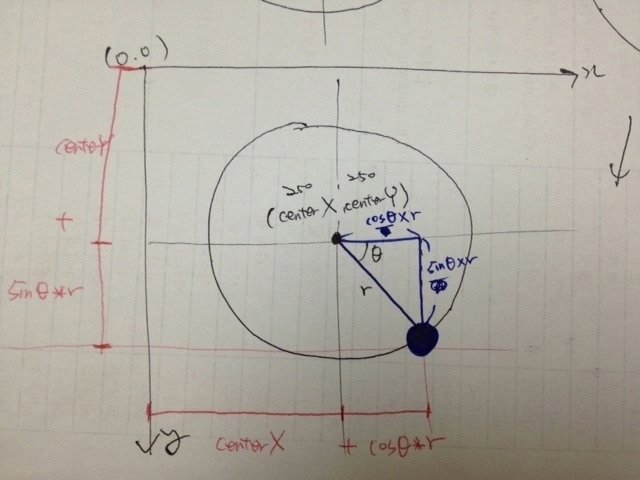 (0.0)
x
centerY
250 250
(centerX, centerY)
cosθ×r
+
θ
sinθ×r
r
sinθ*r
y
centerX + cosθ*r